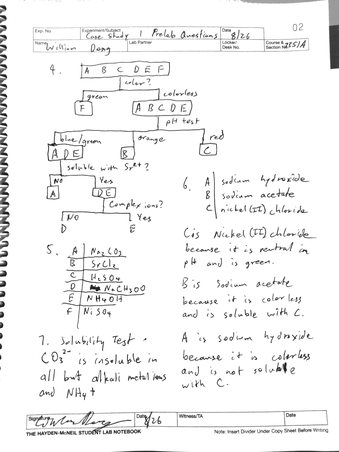 02
Exp. No.
Experiment/Subject
Case Study 1 Prelab Questions
Date
8/26
Name
William Dong
Lab Partner
Locker/
Desk No.
Course &
Section No.
2351A
4.
A B C D E F
color?
green
colorless
F
A B C D E
pH test
blue/green
orange
red
A D E
B
C
soluble with Sr2+?
NO
Yes
A
D E
Complex ions?
NO
Yes
D
E
5.
A Na2CO3
B SrCl2
C H2SO4
D NaCH3OO
E NH4OH
F NiSO4
6.
A sodium hydroxide
B sodium acetate
C nickel (II) chloride
C is Nickel (II) chloride
because it is neutral in
pH and is green.
B is Sodium acetate
because it is colorless
and is soluble with C.
A is sodium hydroxide
because it is colorless
and is not soluble
with C.
7. Solubility Test -
CO3 2- is insoluble in
all but alkali metal ions
and NH4+
Signature
Date
8/26
Witness/TA
Date
THE HAYDEN-McNEIL STUDENT LAB NOTEBOOK
Note: Insert Divider Under Copy Sheet Before Writing